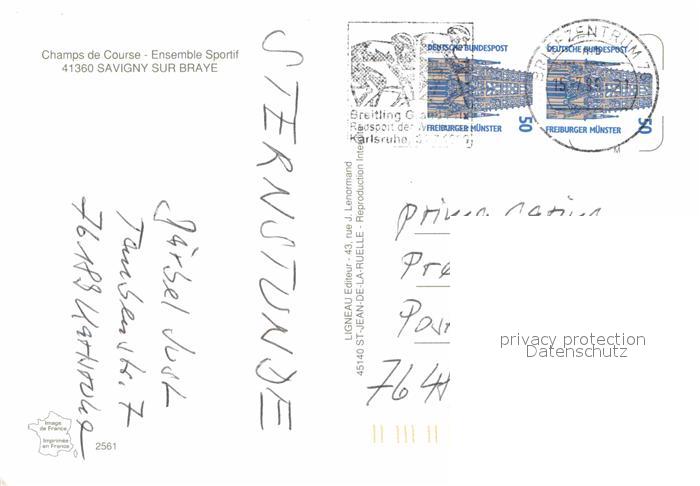 Champs de Course - Ensemble Sportif
41360 SAVIGNY SUR BRAYE
STERNSTUNDE
Bärbel Just
Taubenstr. 7
76189 Karlsruhe
Image
de France
Imprimée
en France
2561
LIGNEAU Editeur - 43, rue J. Lenormand
45140 ST-JEAN-DE-LA-RUELLE - Reproduction
Breitling
Radsport der
Karlsruhe,
DEUTSCHE BUNDESPOST
FREIBURGER MÜNSTER
50
DEUTSCHE BUNDESPOST
FREIBURGER MÜNSTER
50
BRIEFZENTRUM
M
764
privacy protection
Datenschutz